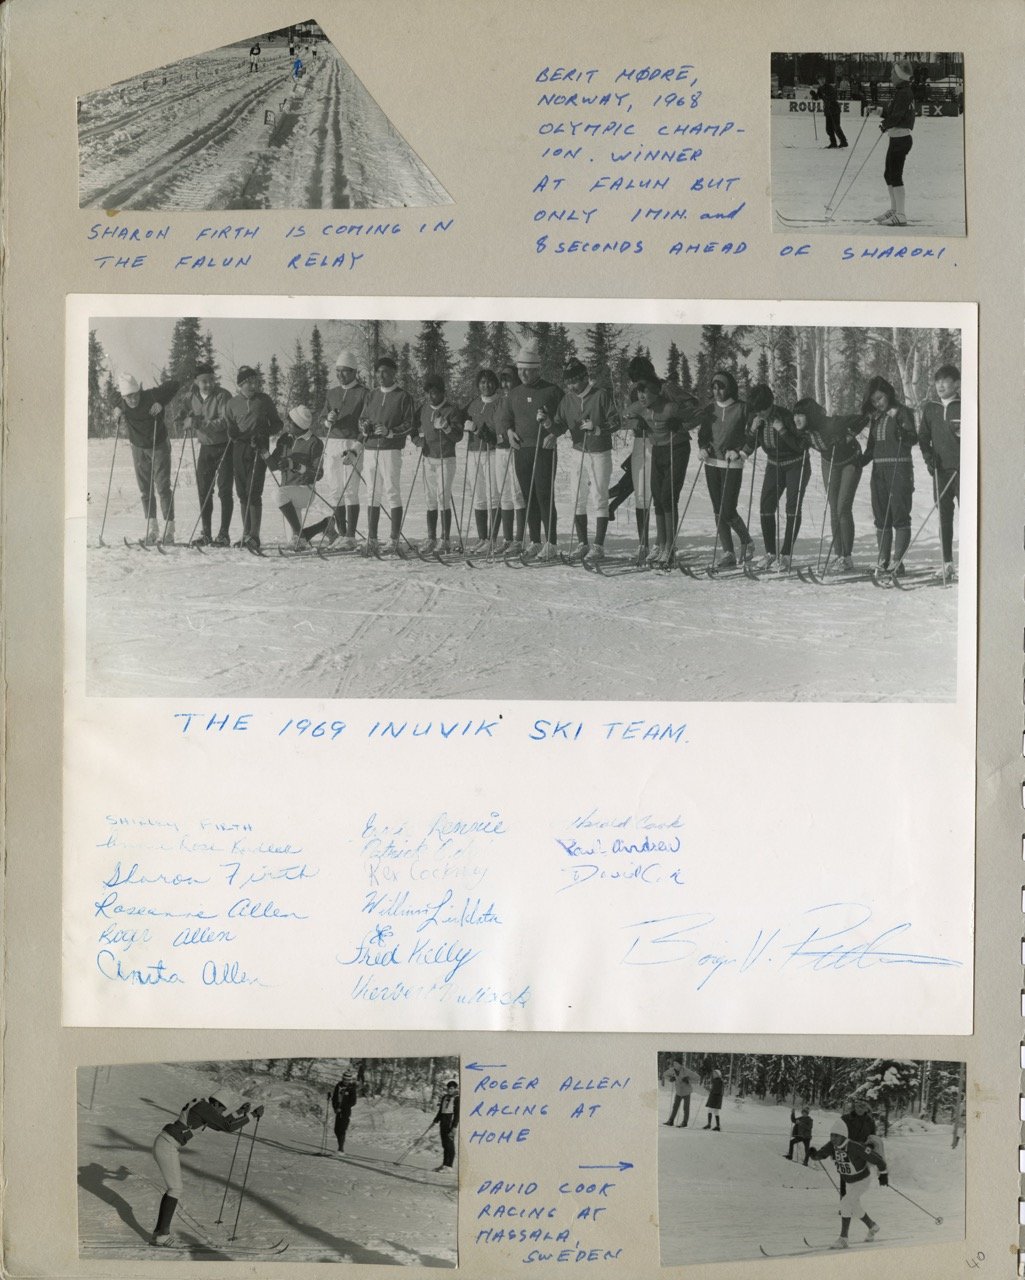 SHARON FIRTH IS COMING IN
THE FALUN RELAY
BERIT MØDRE,
NORWAY, 1968
OLYMPIC CHAMP-
ION. WINNER
AT FALUN BUT
ONLY 1 MIN. and
8 SECONDS AHEAD OF SHARON.
ROULETTE
EX
THE 1969 INUVIK SKI TEAM.
SHIRLEY FIRTH
Rose
Sharon Firth
Roseanne Allen
Roger Allen
Anita Allen
Rennie
Patrick
Rex Cockney
William
Fred Kelly
Herbert
Harold Cook
Paul Andrew
David
← ROGER ALLEN
RACING AT
HOME
→
DAVID COOK
RACING AT
HASSALA,
SWEDEN
266
40